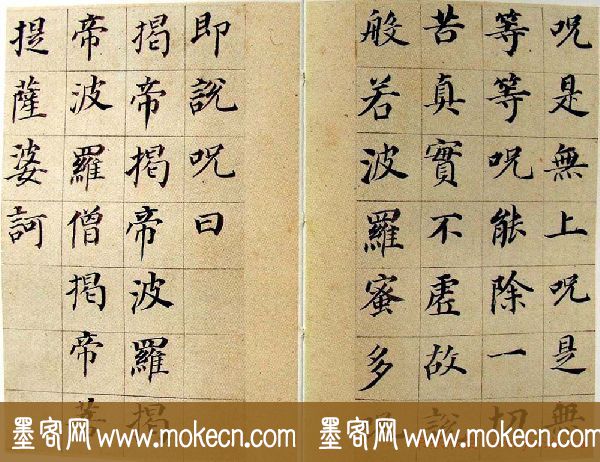 呪是無上呪是無
等等呪能除一切
苦真實不虛故說
般若波羅蜜多呪
即說呪曰
揭帝揭帝波羅揭
帝波羅僧揭帝菩
提薩婆訶
墨客网 www.mokecn.com 墨客网 www.mokecn.com